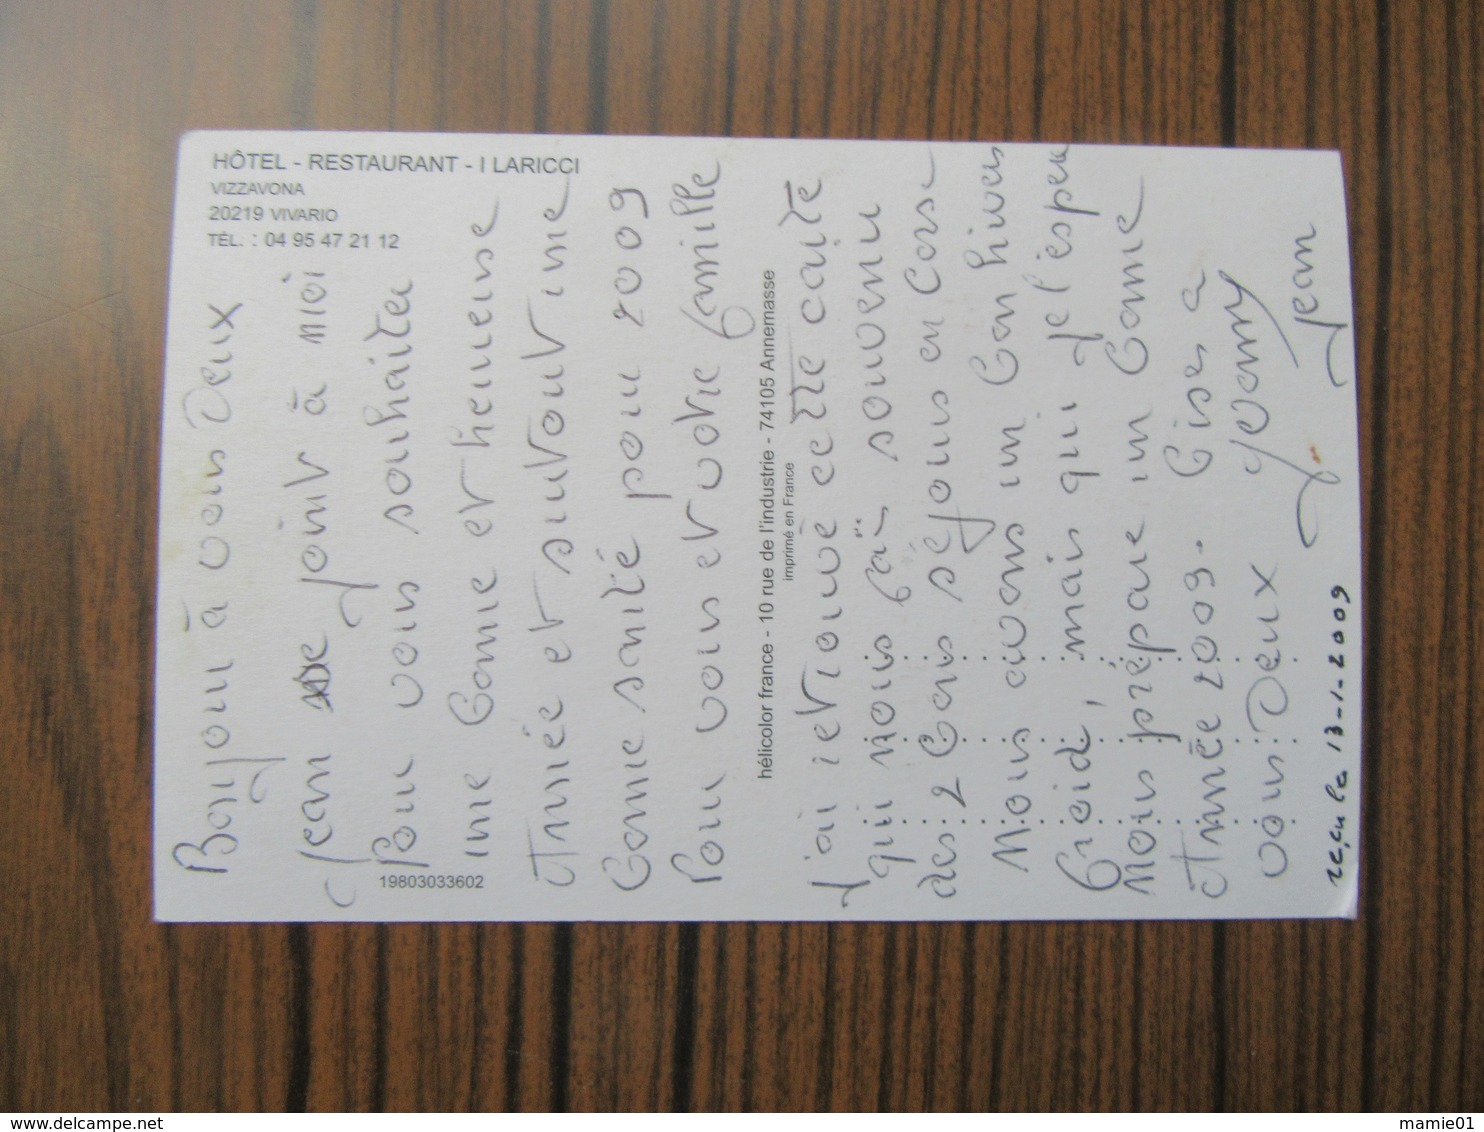 HÔTEL - RESTAURANT - I LARICCI
VIZZAVONA
20219 VIVARIO
TÉL. : 04 95 47 21 12
Bonjour à vous Deux
Jean se joint à moi
Pour vous souhaiter
une Bonne et heureuse
Année et surtout une
Bonne santé pour 2009
Pour vous et votre famille
19803033602
hélicolor france - 10 rue de l'industrie - 74105 Annemasse
imprimé en France
J'ai retrouvé cette carte
qui nous fait souvenir
des 2 Bons séjours en Corse
Nous avons un Bon hiver
froid, mais qui je l'espère
Nous prépare un Bonne
Année 2009. Bises à
vous Deux Yvonne
Jean
reçu le 13-1-2009
mamie01